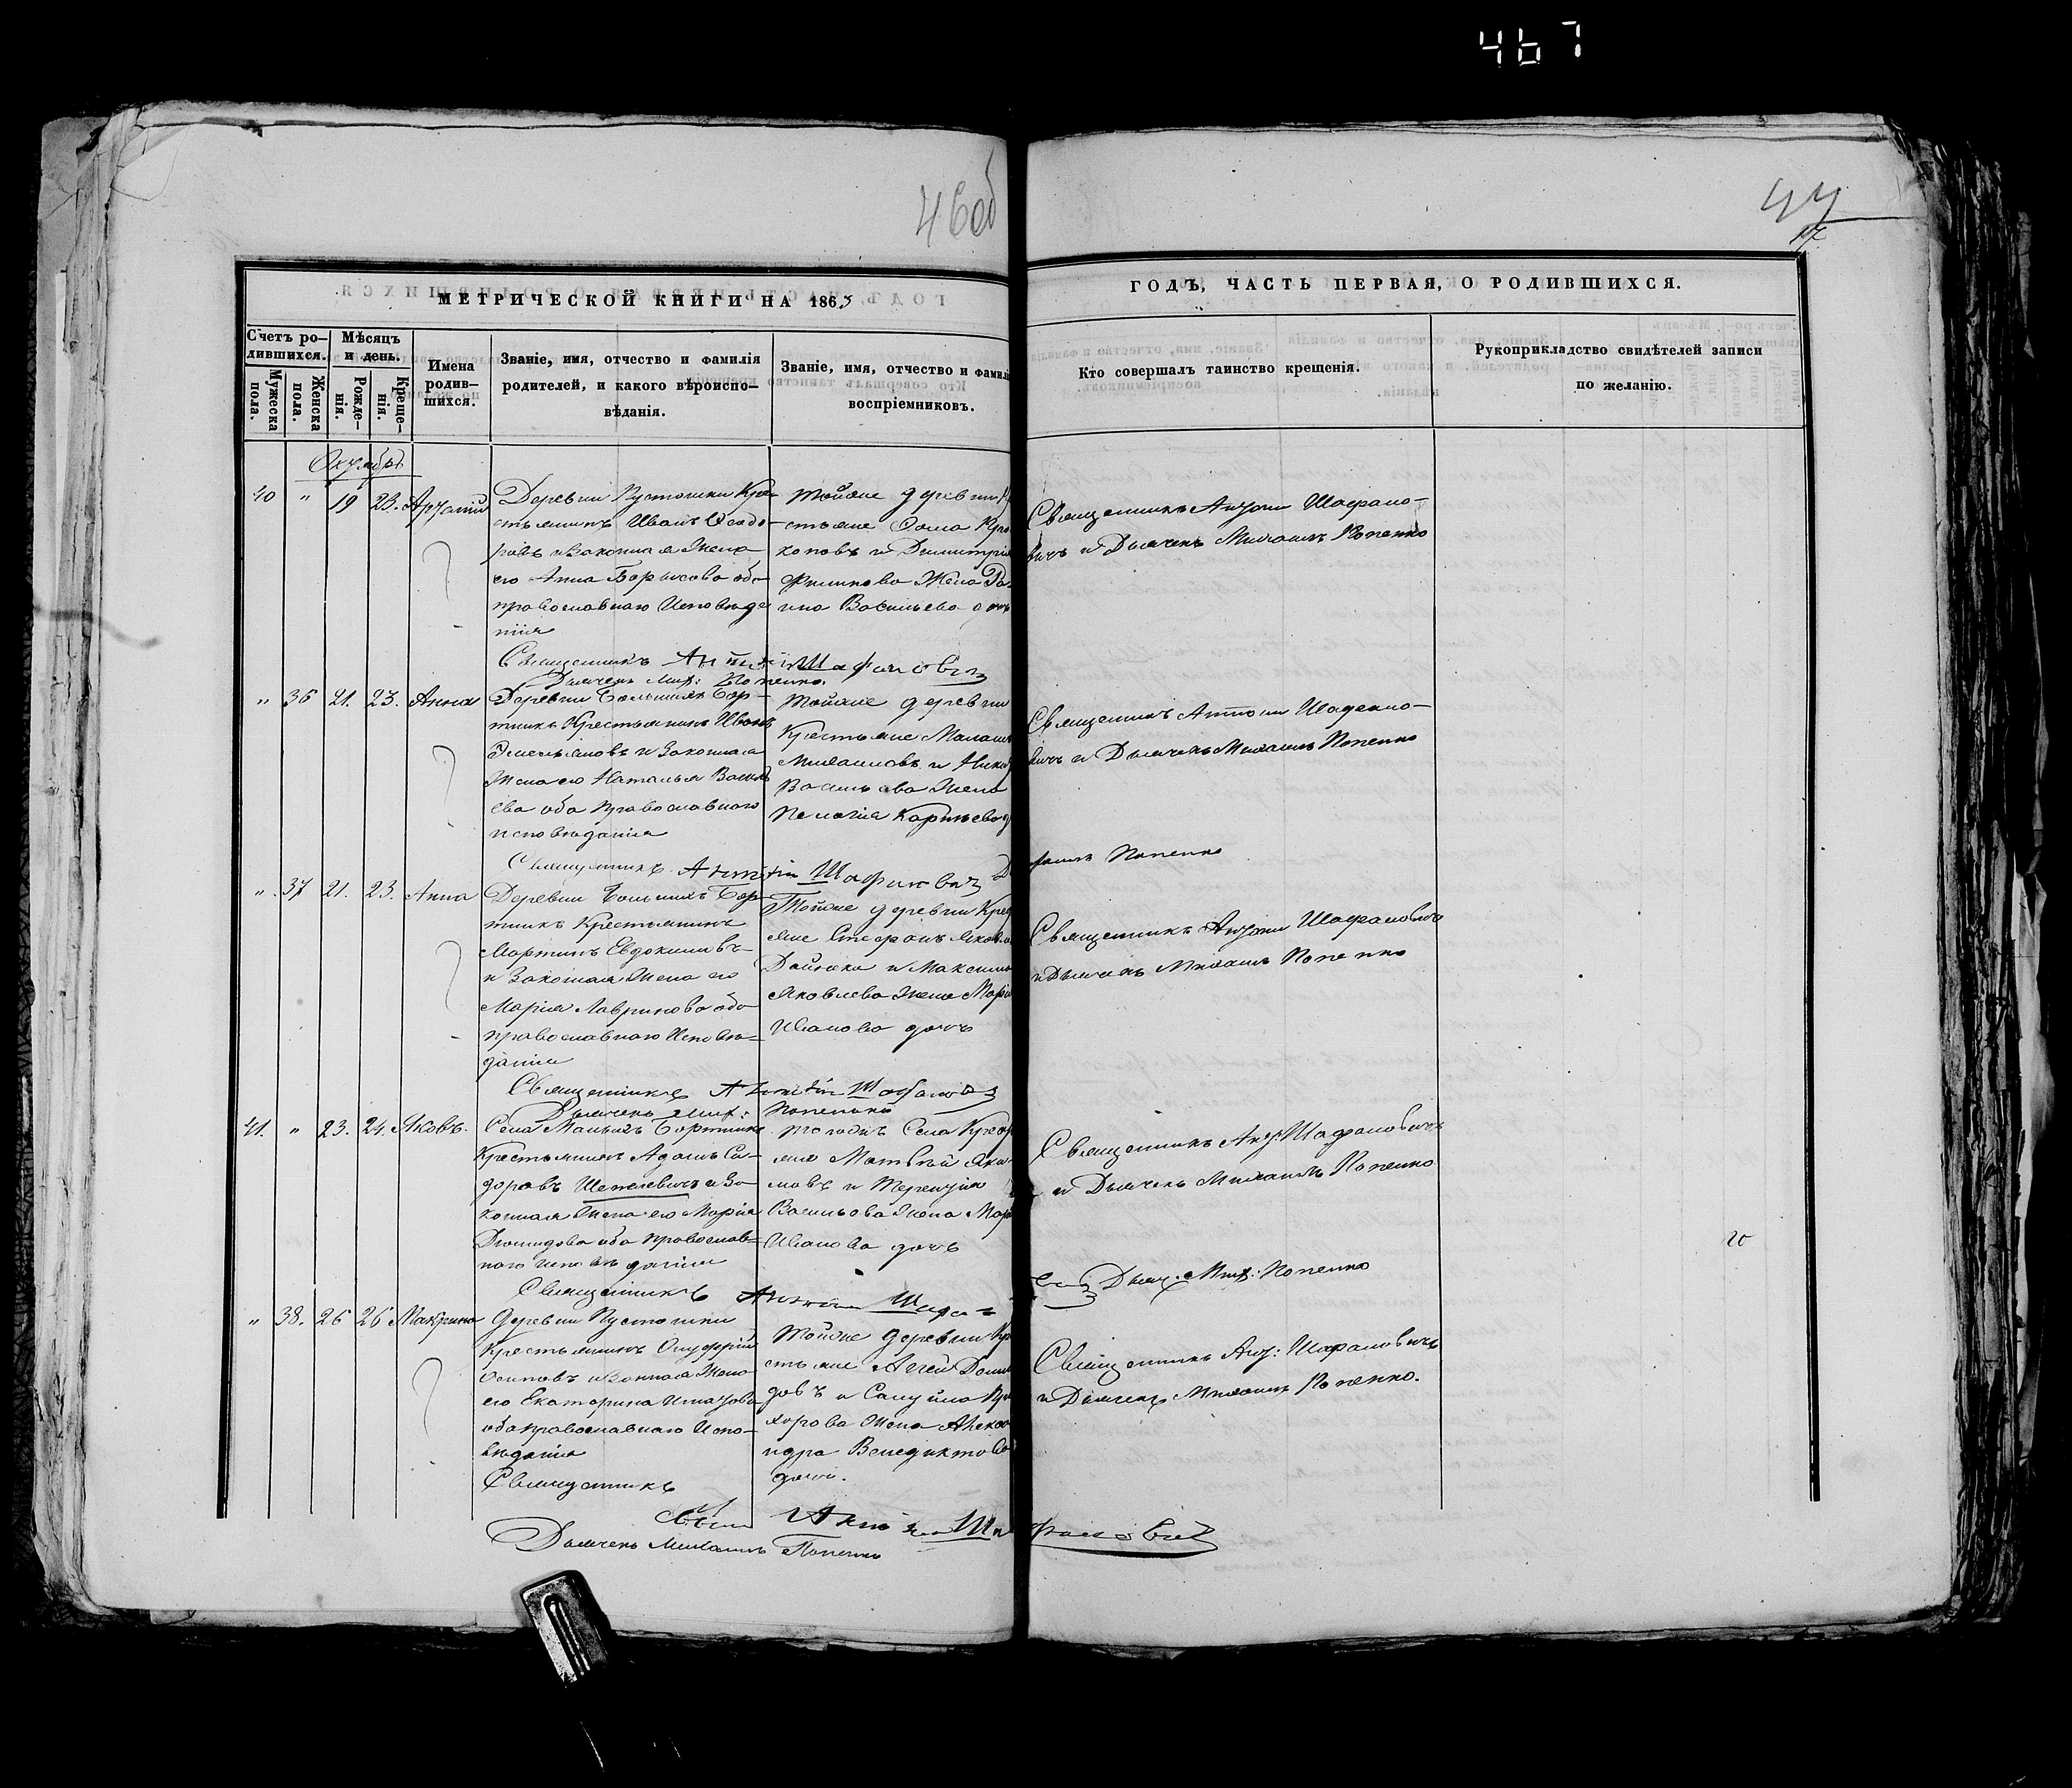 467
46об
47
МЕТРИЧЕСКОЙ КНИГИ НА 1865
ГОДЪ, ЧАСТЬ ПЕРВАЯ, О РОДИВШИХСЯ.
Счетъ ро-
дившихся.
Мужеска
пола.
Женска
пола.
Мѣсяцъ
и день.
Рожде-
нія.
Креще-
нія.
Имена
родив-
шихся.
Званіе, имя, отчество и фамилія
родителей, и какого вѣроиспо-
вѣданія.
Званіе, имя, отчество и фамилі
воспріемниковъ.
Кто совершалъ таинство крещенія.
Рукоприкладство свидѣтелей записи
по желанію.
Октябрь
40 " 19 23.
Деревни Пустошки Кре-
стьянинъ Иванъ Ѳеодо-
ровъ и Законная Жена
его Анна Борисова оба
православнаго Исповѣда
нія
Тойже деревни
стьяне Ѳома Про
коповъ и Димитрія
Филипова Жена
Васильева дочь
Священникъ Антоній Шафроно-
вичъ и Дьячекъ Михаилъ Попенко
Священникъ Антоній Шафроновичъ
Дьячекъ Мих: Попенко.
" 36 21. 23. Анна
Деревни Большихъ Бор-
тникъ Крестьянинъ Иванъ
Емельяновъ и Законная
Жена его Наталья Василь
ева оба Православнаго
исповѣданія
Тойже деревни
Крестьяне
Михаиловъ и
Васильева Жена
Пелагія
Священникъ Антоній Шафроно-
вичъ и Дьячекъ Михаилъ Попенко
Священникъ Антоній Шафроновичъ
хаилъ Попенко
" 37 21. 23 Анна
Деревни Большихъ Бор-
тникъ Крестьянинъ
Мартинъ Евдокимовъ
и Законная Жена его
Марія Лавринова оба
православнаго Исповѣ-
данія
Тойже деревни Крес
яне Стефанъ Яковле
и Максима
Яковлева Жена Марі
Иванова дочь
Священникъ Антоній Шафроновичъ
и Дьячекъ Михаилъ Попенко
Священникъ Антоній Шафроновичъ
Дьячекъ Мих: Попенко
41. " 23. 24. Яковъ.
Села Малыхъ Бортникъ
Крестьянинъ Адамъ Си-
доровъ и За
конная Жена его Марія
Демидова оба православ-
наго исповѣданія
Тогожъ Села Крес
яне Матвѣй Яки
мовъ и Терентія
Васильева Жена Мар
Иванова дочь
Священникъ Ант: Шафроновичъ
и Дьячекъ Михаилъ Попенко
Священникъ Антоній
Дьяч. Мих: Попенко
" 38. 26 26 Макрина
Деревни Пустошки
Крестьянинъ Онуфрій
Осиповъ и Законная Жена
его Екатерина Игнатова
оба православнаго Испо-
вѣданія
Тойже деревни Кре
стьяне
довъ и Самуила Про
хорова Жена Алекса
ндра Венедиктова
дочь.
Священникъ Ант: Шафроновичъ
и Дьячекъ Михаилъ Попенко.
Священникъ
Антоній Шафроновичъ
Дьячекъ Михаилъ Попенко